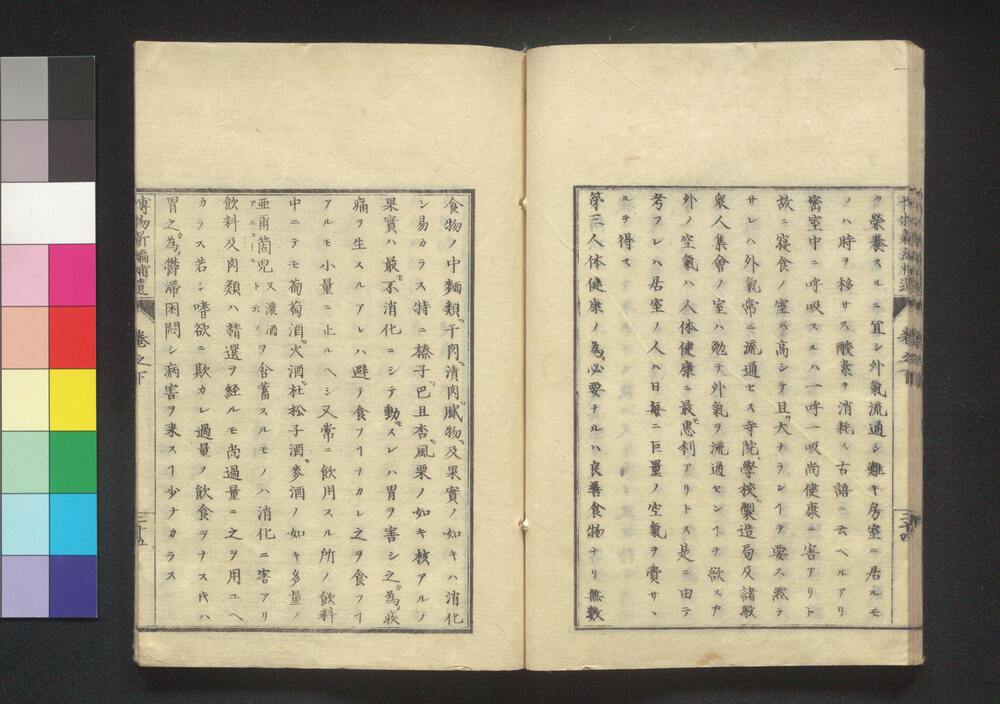 ヲ榮養スルニ宜シ外氣流通シ難キ房室ニ居ルモ
ノハ時ヲ移サス酸素ヲ消耗ス古語ニ云ヘルアリ
密室中ニ呼吸スルハ一呼一吸尚健康ニ害アリト
故ニ寢食ノ室ハ高シテ且大ナランヿヲ要ス然ラ
サレハ外氣常ニ流通セス寺院學校製造局及諸般
衆人集會ノ室ハ勉テ外氣ヲ流通センヿヲ欲ス戸
外ノ空氣ハ人体健康ニ最モ利アリトス是ニ由テ
考フレハ居室ノ人ハ日毎ニ巨量ノ空氣ヲ費サヽ
ルヲ得ス
第三人体健康ノ為必要ナルハ良善食物ナリ無數
三十四
食物ノ中麺類干肉漬肉膩物及果實ノ如キハ消化
シ易カラス特ニ榛子巴且杏風栗ノ如キ核アルノ
果實ハ最モ不消化ニシテ動モスレハ胃ヲ害シ之カ為ニ疾
痛ヲ生スルアレハ避テ食フヿヲカレ之ヲ食フヿ
アルモ小量ニ止ルヘシ又常ニ飲用スル所ノ飲料
中ニテモ葡萄酒火酒杜松子酒麥酒ノ如キ多量ノ
亜爾箇児アルコール又濃酒ト云フヲ含蓄スルモノハ消化ニ害アリ
飲料及肉類ハ精選ヲ経ルモ尚過量ニ之ヲ用ユヘ
カラス若シ嗜欲ニ欺カレ過量ノ飲食ヲナス時ハ
胃之カ為ニ欝滞困悶シ病害ヲ来スヿ少ナカラス
博物新編補遺 巻之下 三十五